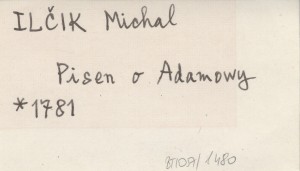 ILČIK Michal
Pisen o Adamowy
*1781
/1480